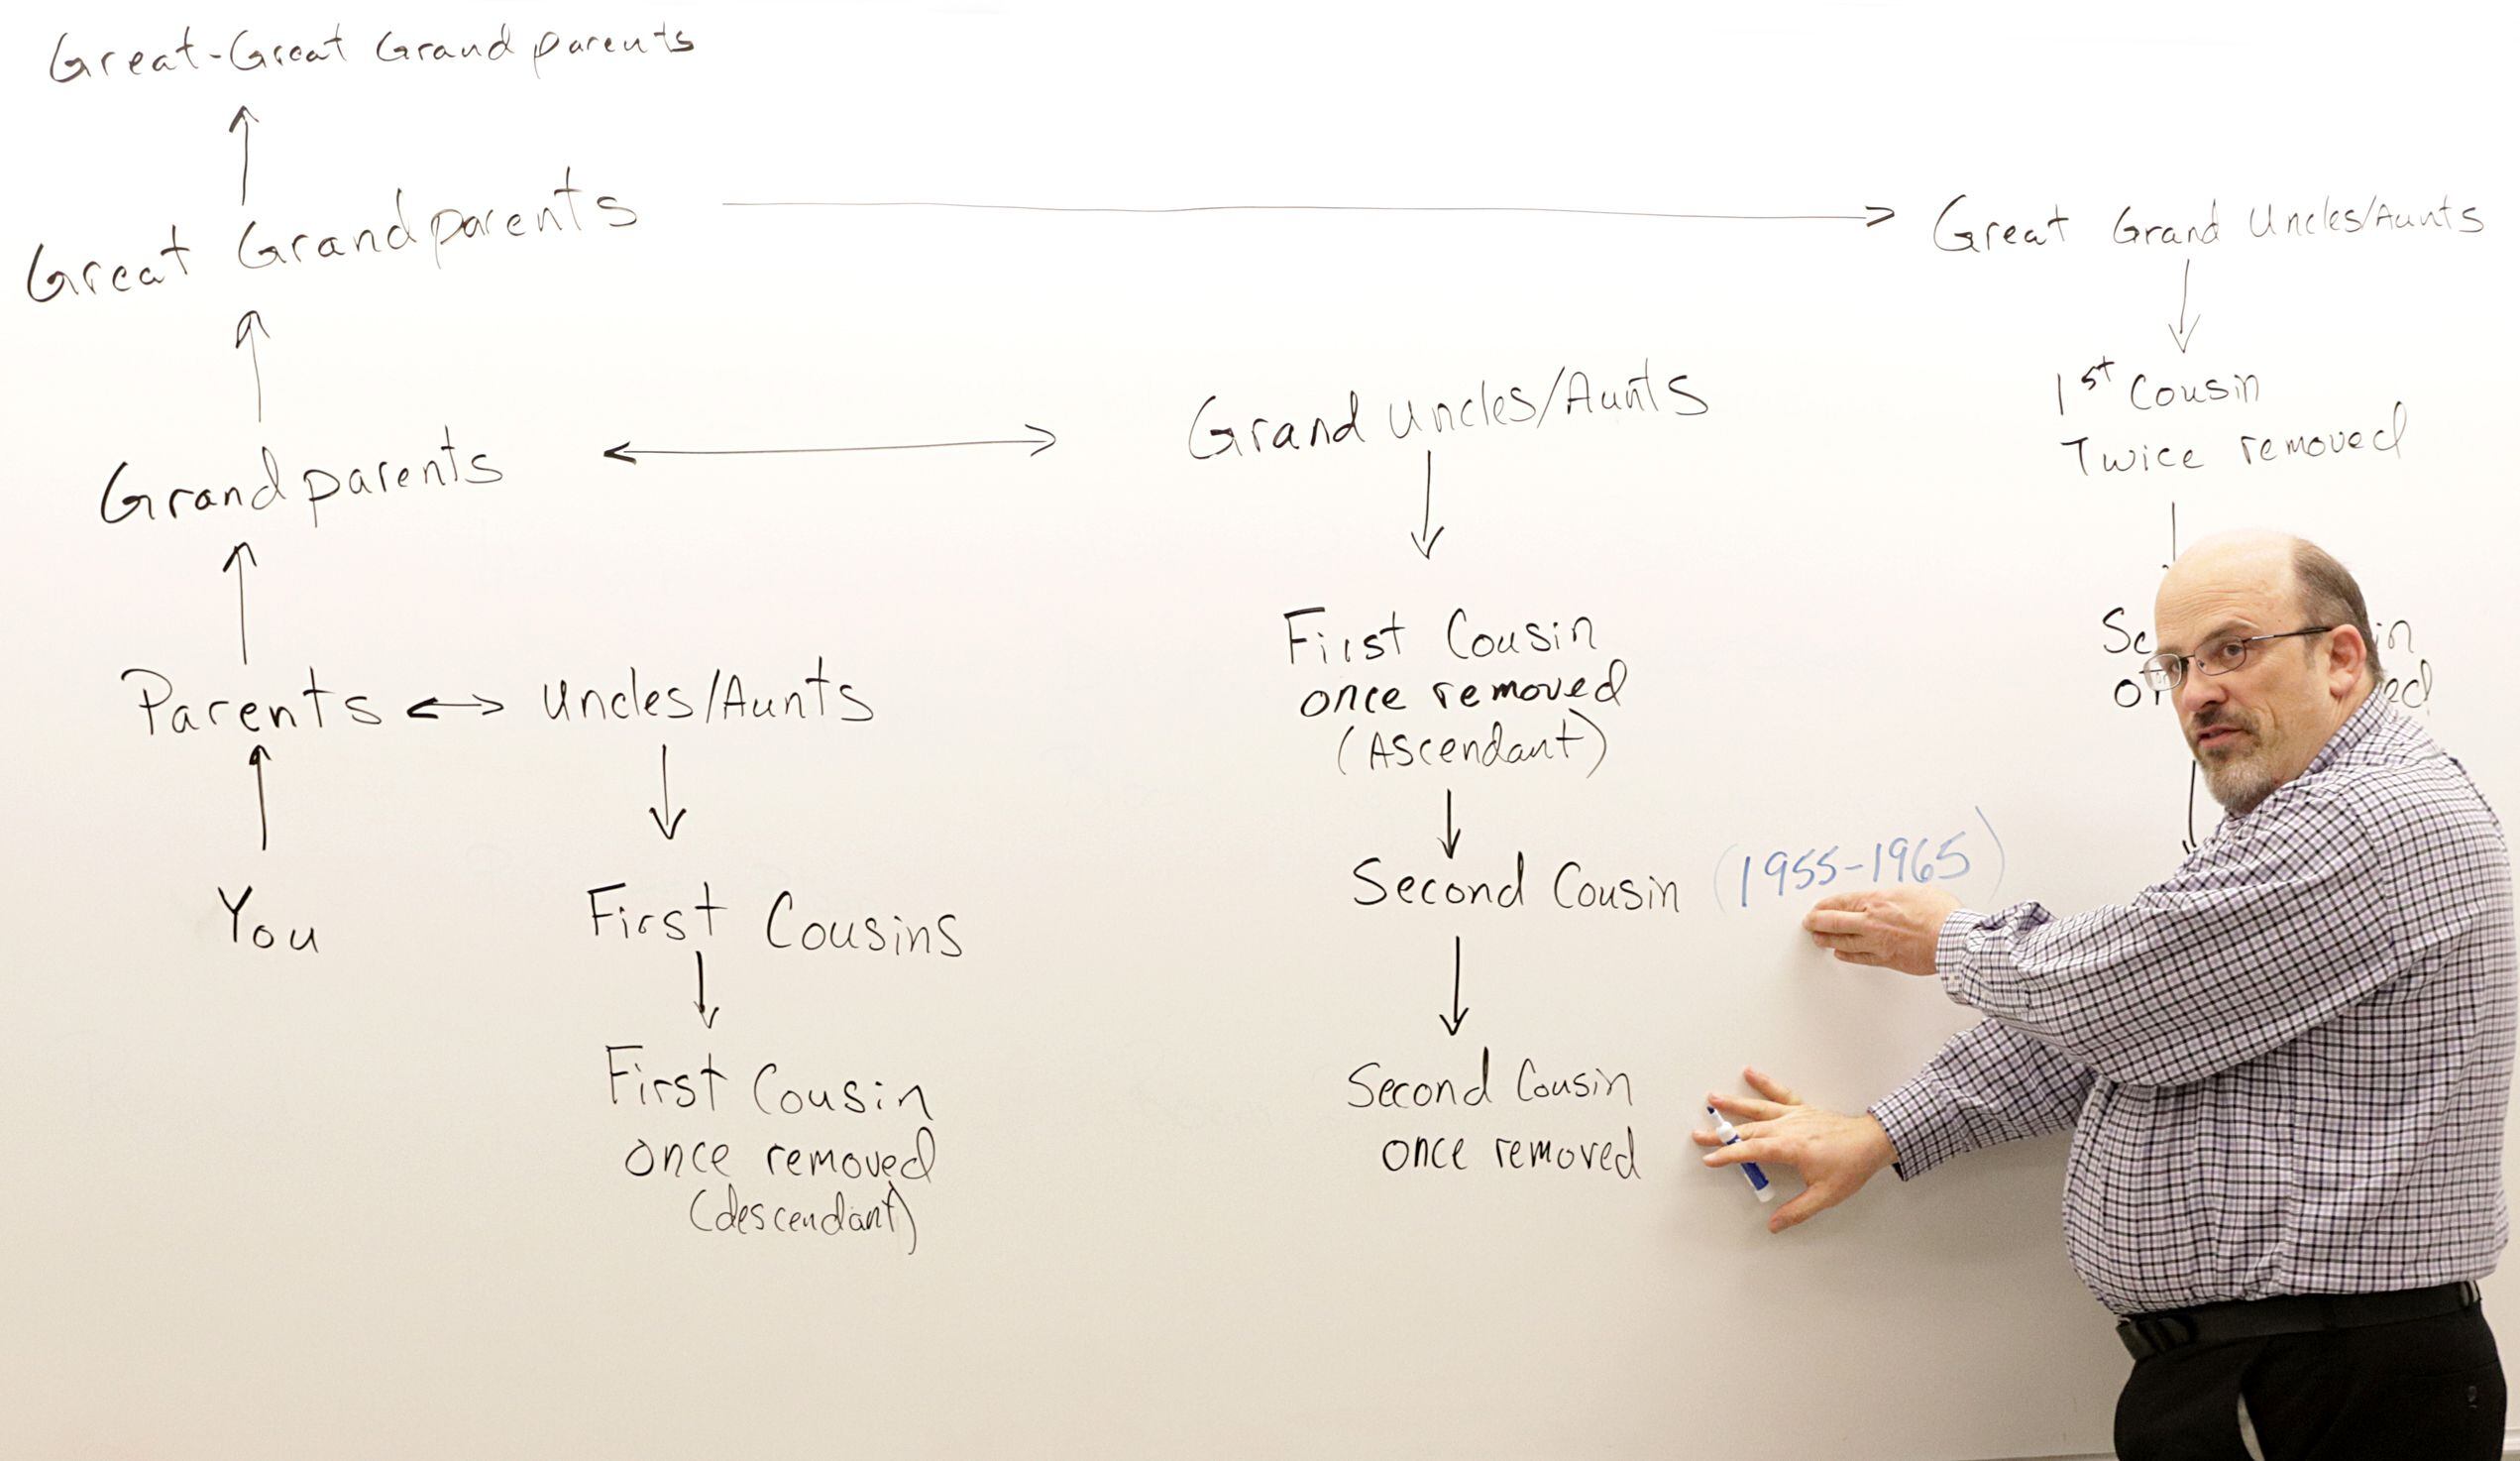 Great-Great Grandparents
Great Grandparents
Great Grand Uncles/Aunts
Grandparents
Grand Uncles/Aunts
1st Cousin
Twice removed
Parents
Uncles/Aunts
First Cousin
once removed
(Ascendant)
You
First Cousins
Second Cousin (1955-1965)
First Cousin
once removed
(descendant)
Second Cousin
once removed